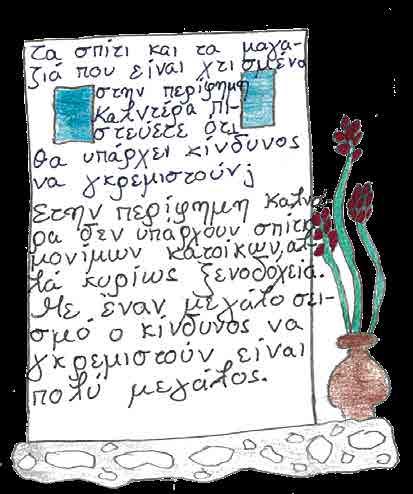 τα σπίτι και τα μαγα-
ζιά που είναι χτισμένο
στην περίφημη
καλντέρα πι-
στεύετε ότι
θα υπάρχει κίνδυνος
να γκρεμιστούν;
Στην περίφημη καλντέ
ρα δεν υπάρχουν σπίτια
μονίμων κατοίκων, αλ
λά κυρίως ξενοδοχεία.
Με έναν μεγάλο σει-
σμό ο κίνδυνος να
γκρεμιστούν είναι
πολύ μεγάλος.